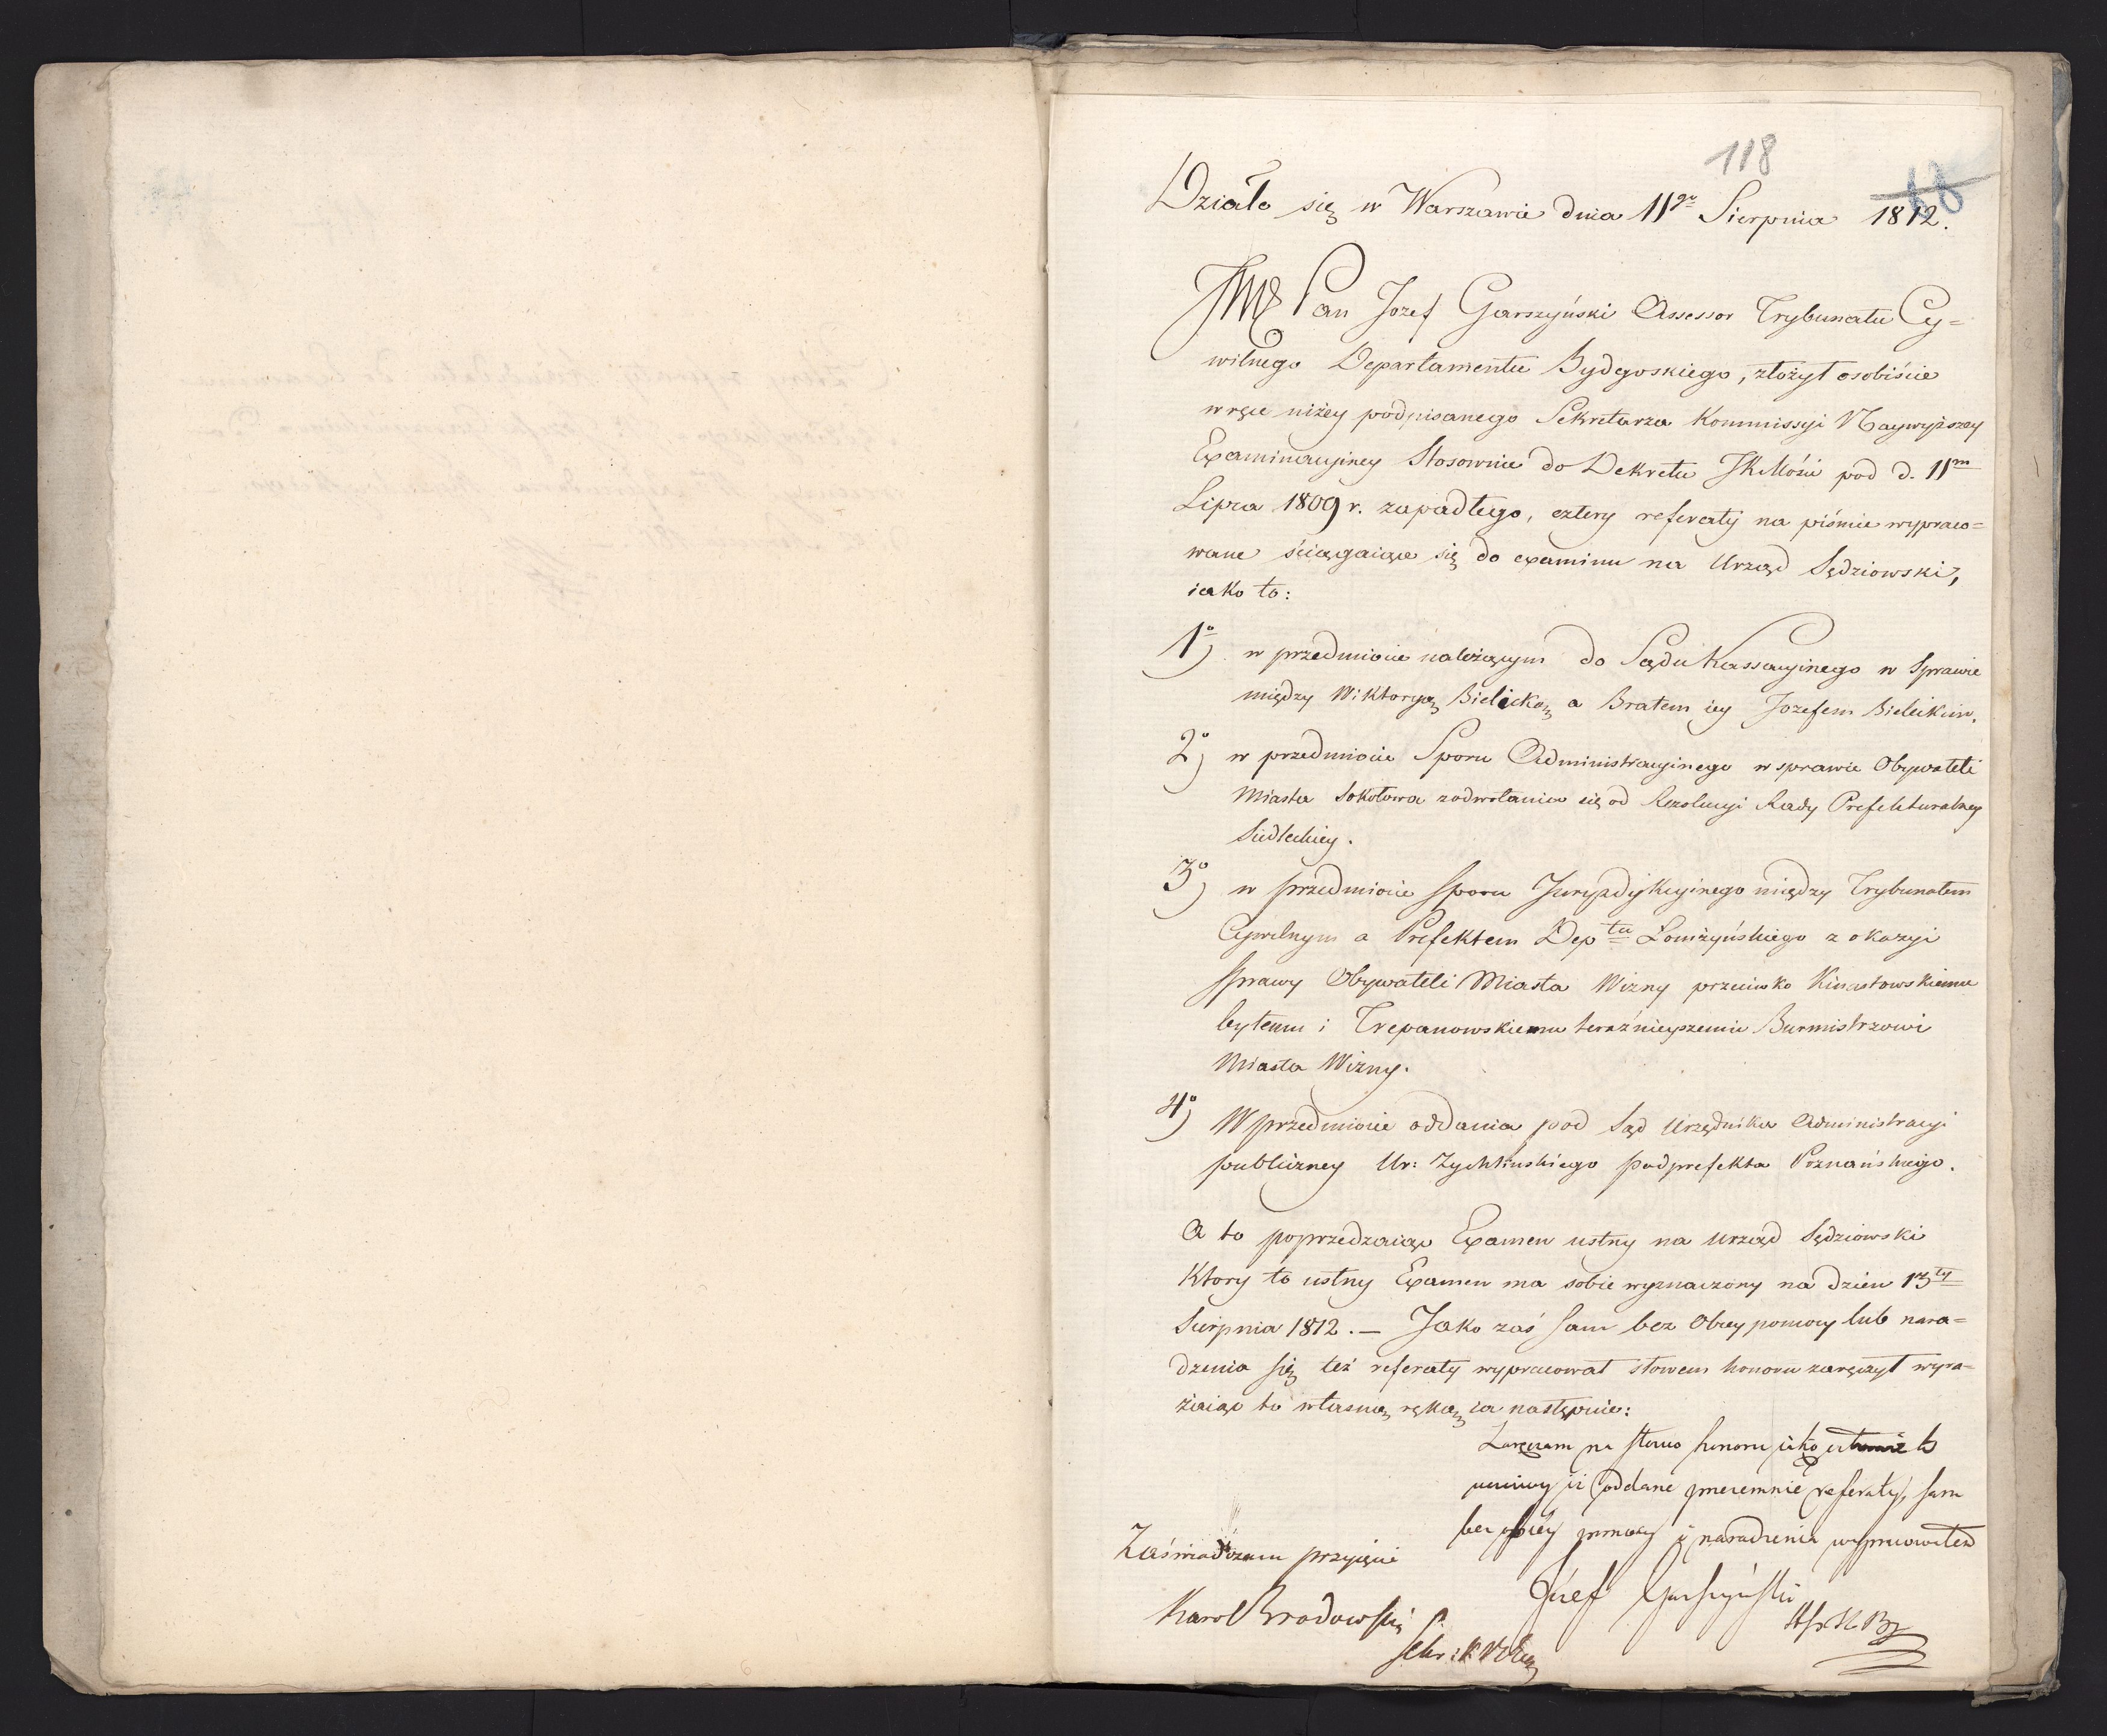 118
68
Działo się w Warszawie dnia 11go Sierpnia 1812.
JMć Pan Jozef Garszyński Assessor Trybunału Cy=
wilnego Departamentu Bydgoskiego, złożył osobiście
w ręce niżey podpisanego Sekretarza Kommissyi Naywyższey
Examinacyiney Stosownie do Dekretu JKMości pod d. 11m
Lipca 1809 r. zapadłego, cztery referaty na piśmie wypraco=
wane ściągaiące się do examinu na Urząd Sędziowski,
iako to:
1o) w przedmiocie należącym do Sądu Kassacyinego w Sprawie
między Wiktoryą Bielicką a Bratem iey Jozefem Bielickim.
2o) w przedmiocie Sporu Administracyinego w sprawie Obywateli
Miasta Sokołowa zodwołania się od Rezolucyi Rady Prefekturalney
Siedleckiey.
3o) w przedmiocie sporu Juryzdykcyinego między Trybunałem
Cywilnym a Prefektem Deptu Łomżyńskiego z okazyi
Sprawy Obywateli Miasta Wizny przeciwko Kinastowskiemu
byłemu i Trepanowskiemu teraźnieyszemu Burmistrzowi
Miasta Wizny.
4o) W przedmiocie oddania pod Sąd Urzędnika Administracyi
publiczney Ur: Zychlińskiego podprefekta Poznańskiego.
A to poprzedzaiąc Examen ustny na Urząd Sędziowski
Ktory to ustny Examen ma sobie wyznaczony na dzien 13ty
Sierpnia 1812. — Jako zaś sam bez Obcey pomocy lub nara=
dzenia się też referaty wypracował słowem honoru zaręczył wyra=
żaiąc to własną ręką ia następnie:
Zaręczam na słowo honoru jako
poczciwy iż oddane przezemnie referaty, sam
bez obcéy pomocy i naradzenia wypracowałem
Józef Garszyński
Zaświadczam przyięcie
Karol Brodowski
Sekr: K. N. Ex